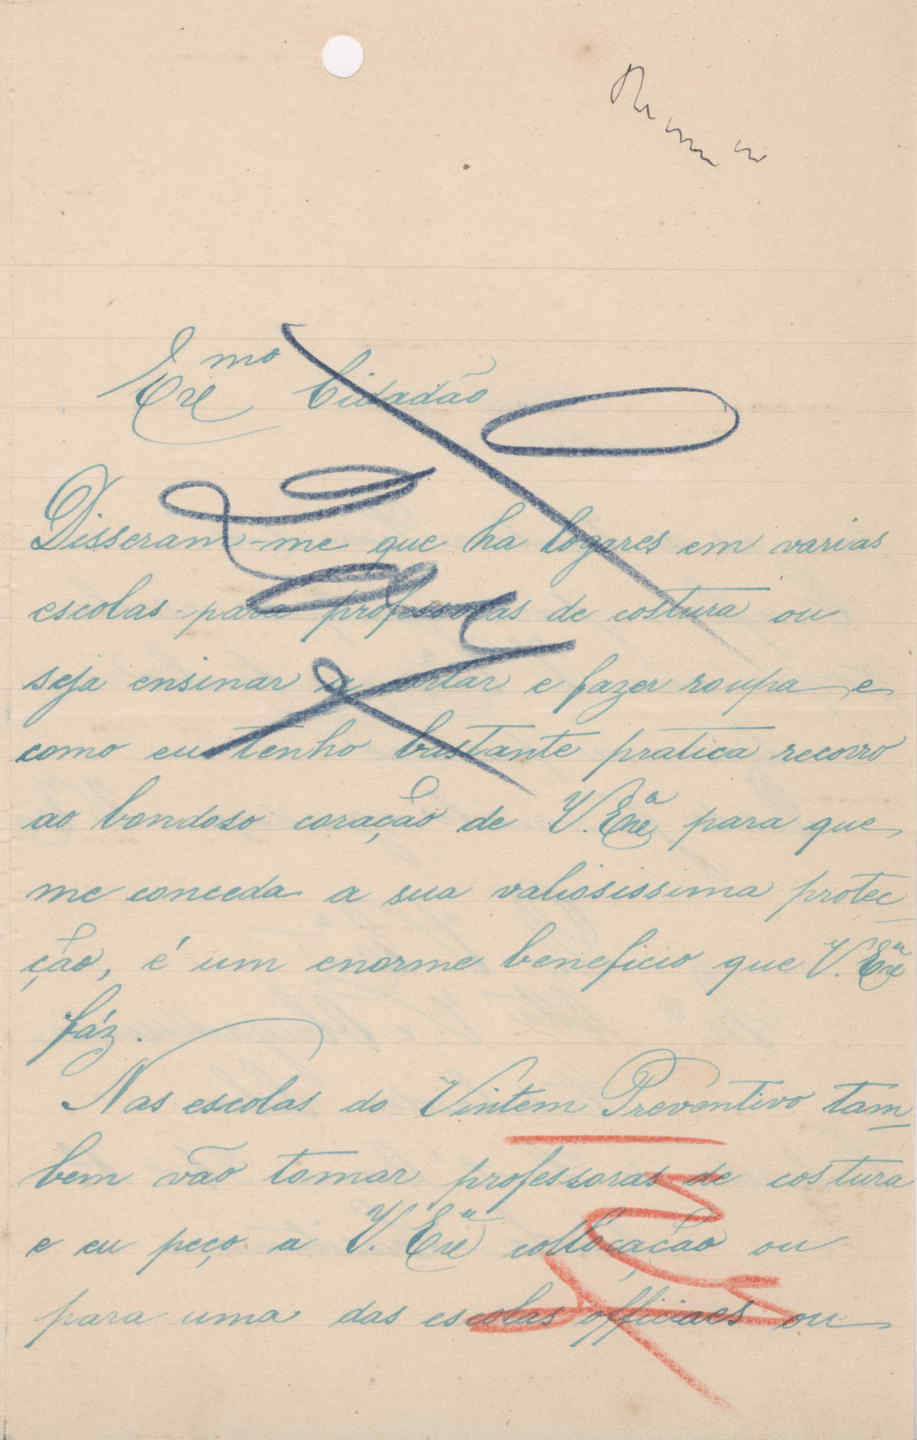 Exc^mo Cidadão
Disseram-me que ha logares em varias
escolas para professoras de costura ou
seja ensinar a cortar e fazer roupa e
como eu tenho bastante pratica recorro
ao bondoso coração de V. Exc^a para que
me conceda a sua valiosissima protec
ção, é um enorme beneficio que V. Exc^a
fáz.
Nas escolas do Vintem Preventivo tam
bem vão tomar professoras de costura
e eu peço a V. Exc^a collocação ou
para uma das escolas officiaes ou